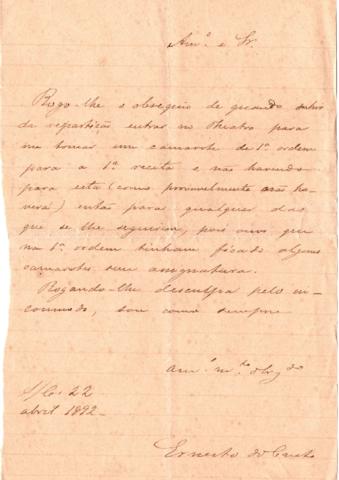 Am.º e Sr.
Rogo-lhe o obsequio de quando sahir
da repartição entrar no theatro para
me tomar um camarote de 1ª ordem
para a 1ª recita e não havendo
para esta (como provavelmente não ha-
verá) então para qualquer das
que se lhe seguirem, pois ouvi que
na 1ª ordem tinham ficado alguns
camarotes sem assignatura.
Rogando-lhe desculpa pelo in-
commodo, sou como sempre
am.º m.to obrg.do
S/C. 22
abril 1892-
Ernesto do Canto